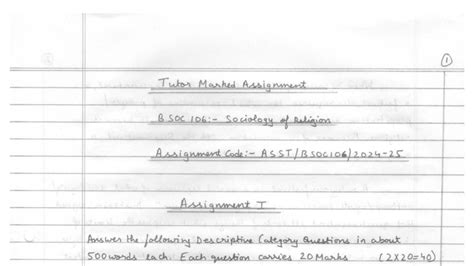 1
Tutor Marked Assignment
BSOC 106:- Sociology of Religion
Assignment Code:- ASST/BSOC106/2024-25
Assignment I
Answer the following Descriptive Category Questions in about
500 words each. Each question carries 20 Marks (2X20=40)